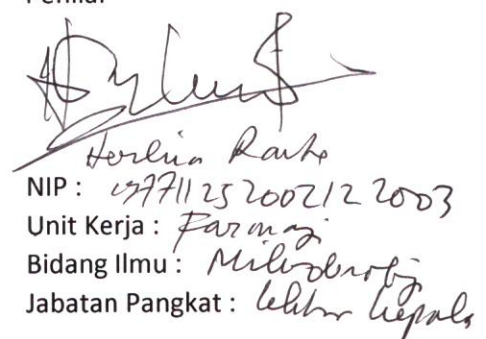 Penilai
Herlina Rante
NIP : 197711252002122003
Unit Kerja : Farmasi
Bidang Ilmu : Mikrobiologi
Jabatan Pangkat : Lektor Kepala